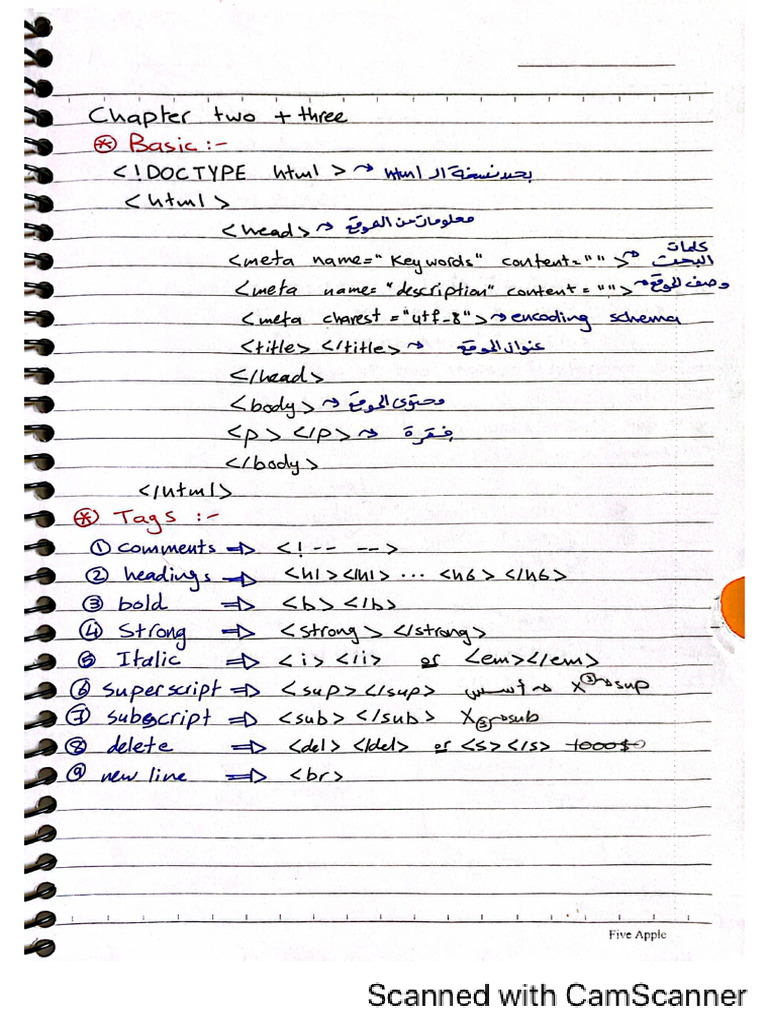 Chapter two + three
* Basic :-
<!DOCTYPE html> → بحدد نسخة الـ html
<html>
<head> → معلومات عن الموقع
<meta name="Keywords" content=""> → كلمات البحث
<meta name="description" content=""> → وصف الموقع
<meta charest="utf-8"> → encoding schema
<title> </title> → عنوان الموقع
</head>
<body> → محتوى الموقع
<p> </p> → فقرة
</body>
</html>
* Tags :-
① comments ⇒ <!-- -->
② headings ⇒ <h1></h1> ... <h6> </h6>
③ bold ⇒ <b> </b>
④ Strong ⇒ <strong> </strong>
⑤ Italic ⇒ <i> </i> or <em></em>
⑥ superscript ⇒ <sup></sup> أسس → X③→sup
⑦ subscript ⇒ <sub> </sub> X③→sub
⑧ delete ⇒ <del> </del> or <s></s> 1000$
⑨ new line ⇒ <br>
Five Apple
Scanned with CamScanner